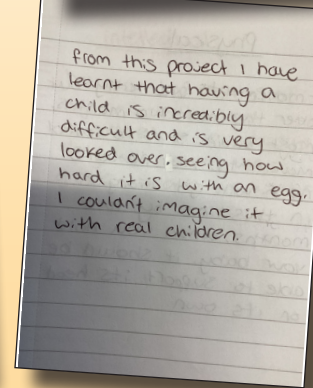 from this project I have
learnt that having a
child is incredibly
difficult and is very
looked over. seeing how
hard it is with an egg.
I couldn't imagine it
with real children.